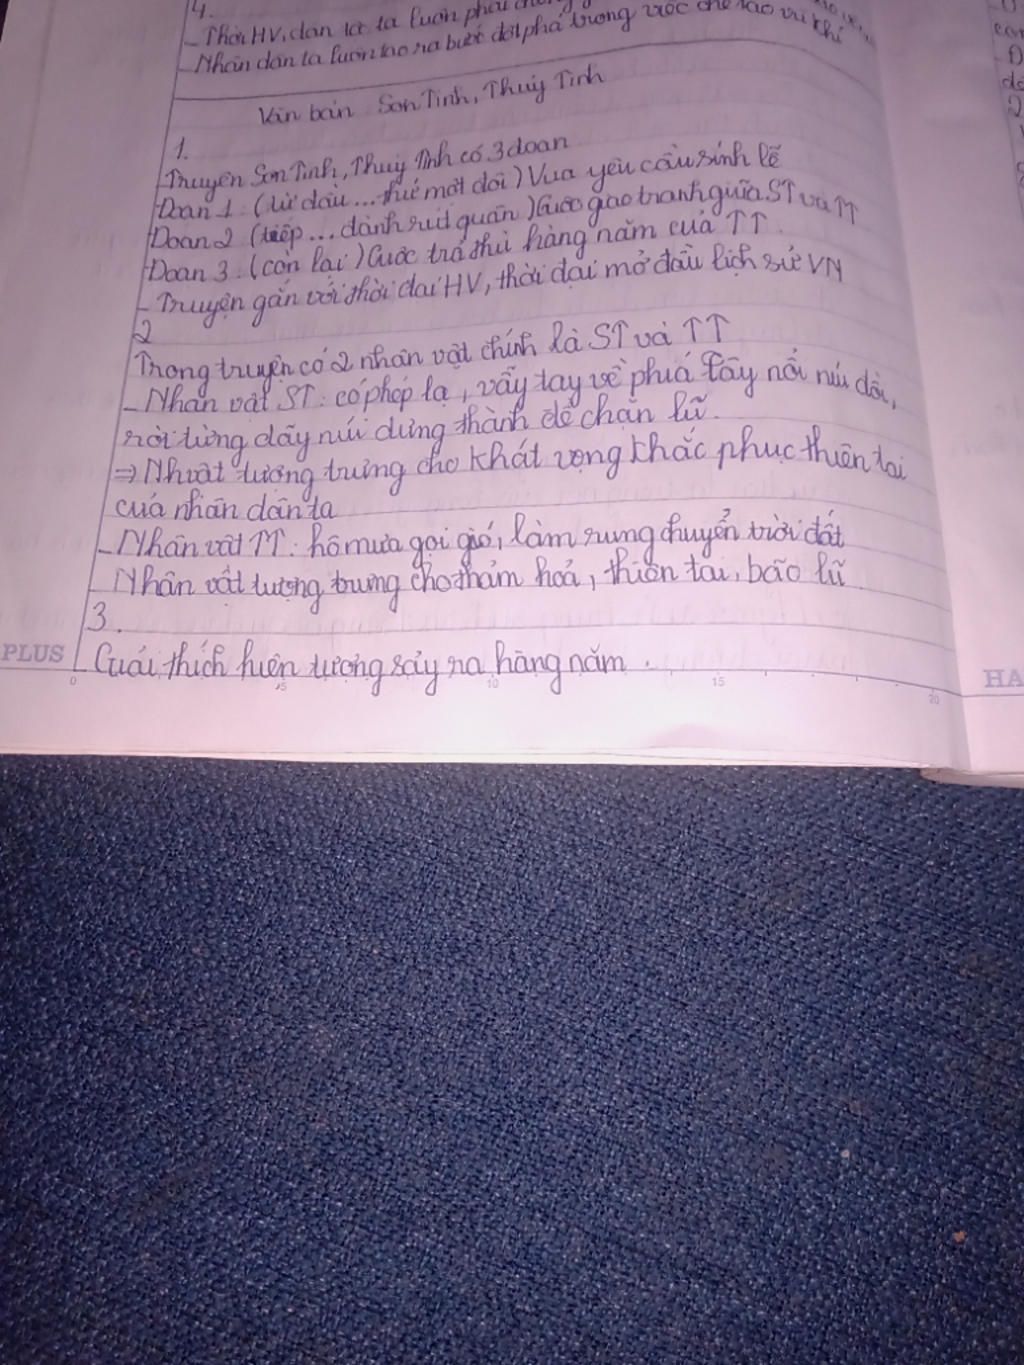 4.
- Thời HV, dân tộc ta luôn phải
- Nhân dân ta luôn tạo ra bước đột phá trong việc chế tạo vũ khí
Văn bản Sơn Tinh, Thuỷ Tinh
1.
- Truyện Sơn Tinh, Thuỷ Tinh có 3 đoạn
Đoạn 1: (từ đầu ... thứ một đôi) Vua yêu cầu sính lễ
Đoạn 2 (tiếp ... đành rút quân) Cuộc giao tranh giữa ST và TT
Đoạn 3: (còn lại) Cuộc trả thù hàng năm của TT.
- Truyện gắn với thời đại HV, thời đại mở đầu lịch sử VN
2
Trong truyện có 2 nhân vật chính là ST và TT
- Nhân vật ST: có phép lạ, vẫy tay về phía tây nổi núi đồi,
rời từng dãy núi dựng thành để chặn lũ.
⇒ Nhvật tượng trưng cho khát vọng khắc phục thiên tai
của nhân dân ta
- Nhân vật TT: hô mưa gọi gió, làm rung chuyển trời đất
- Nhân vật tượng trưng cho thảm hoạ, thiên tai, bão lũ
3.
Giải thích hiện tượng sảy ra hàng năm.
PLUS
0 5 10 15 20
HA